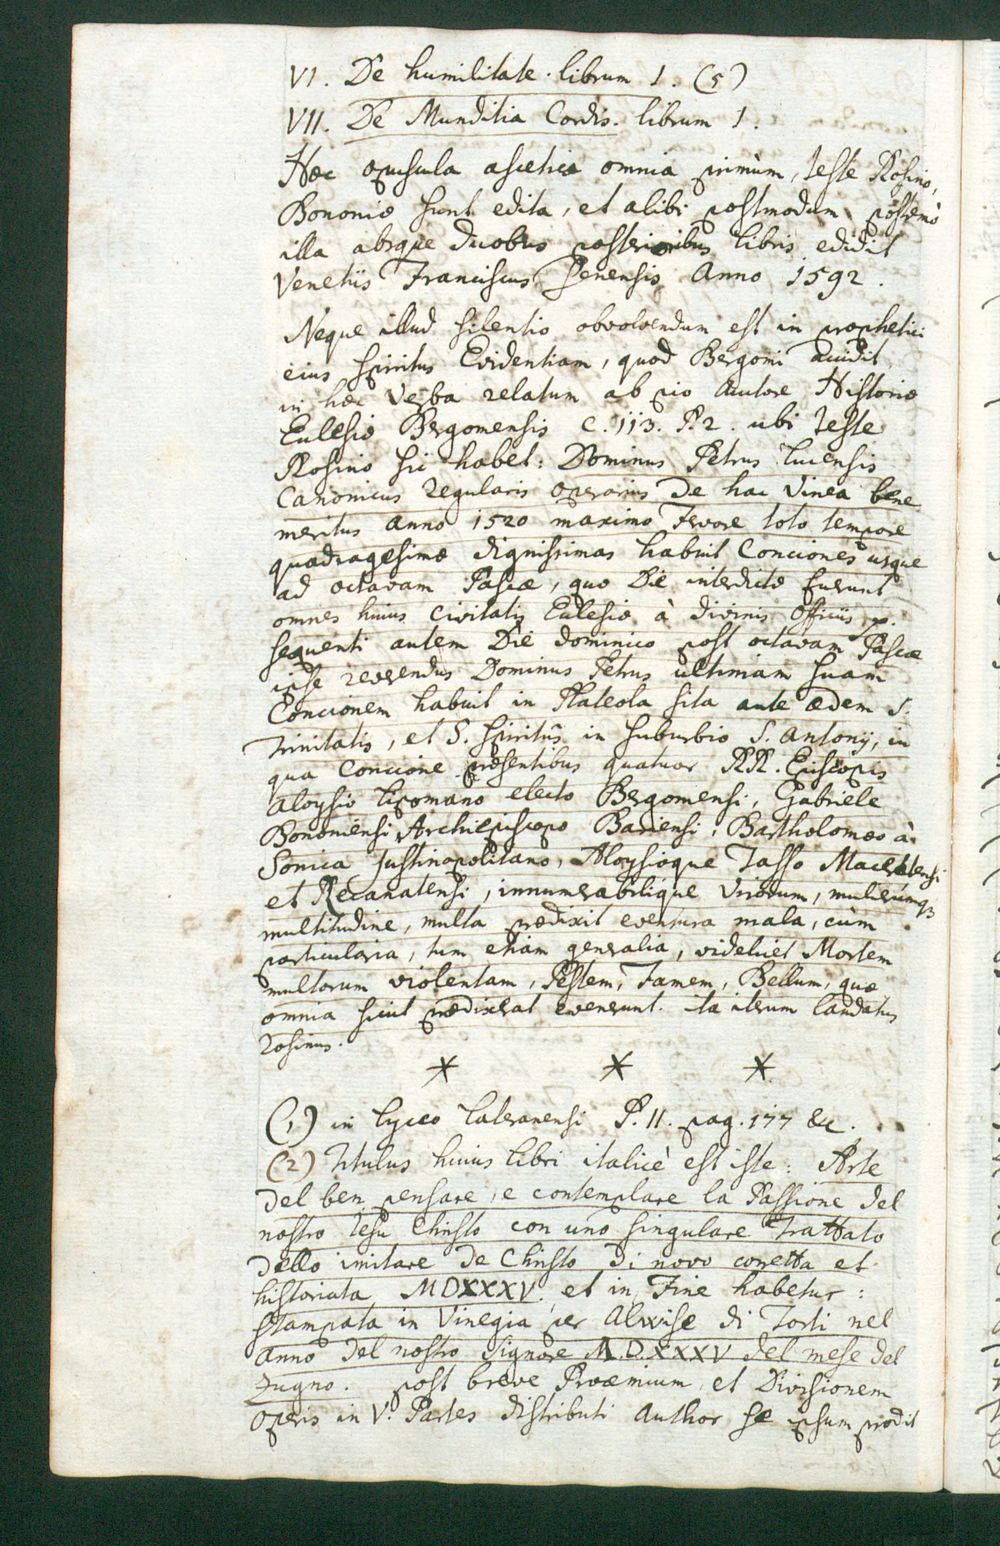 VI. De humilitate. librum 1. (5)
VII. De Munditia Cordis. librum 1.
Hæc opuscula ascetica omnia primùm, teste Rosino,
Bononiæ sunt edita, et alibi postmodum, postremò
illa absque duobus posterioribus libris edidit
Venetiis Franciscus Senensis Anno 1592.
Neque illud silentio obvolvendum est in prophetici
eius spiritus Evidentiam, quod Bergomi accidit
in hæc Verba relatum ab pio Autore Historiæ
Eclesiæ Bergomensis C. 113. P. 2. ubi teste
Rosino sic habet: Dominus Petrus Lucensis
Canonicus Regularis operarius De hac Vinea bene
meritus anno 1520 maximo Fervore toto tempore
quadragesimæ dignissimas habuit Conciones usque
ad octavam Pascæ, quo Die interdictæ fuerunt
omnes huius Civitatis Eclesiæ à divinis officiis,
sequenti autem Die dominico post octavam Pascæ
ipse reverendus Dominus Petrus ultimam suam
Concionem habuit in Plateola sita ante ædem S.
Trinitatis, et S. Spiritûs in suburbio S. Antonij, in
qua Concione præsentibus quatuor RR. Episcopis
Aloysio Lipomano electo Bergomensi, Gabriele
Bononiensi Archiepiscopo Bariensi, Bartholomæo à
Sonica Justinopolitano, Aloysioque Tasso Maceratensi
et Recanatensi, innumerabilique Virorum, mulierumq3
multitudine, multa prædixit eventura mala, cùm
particularia, tum etiam generalia, videlicet Mortem
multorum violentam, Pestem, Famem, Bellum, quæ
omnia sicut prædixerat evenerunt. ita iterum laudatus
Rosinus.
* * *
(1) in Lyceo Lateranensi P. II. pag. 177 &c.
(2) Titulus huius libri italicè est iste: Arte
del ben pensare, e contemplare la Passione del
nostro Iesu Christo con uno singulare Trattato
dello imitare de Christo di novo corretta et
historiata MDXXXV. et in Fine habetur:
Stampata in Vinegia per Alwise di Torti nel
anno del nostro Signore M.D.XXXV del mese del
Zugno. post breve Proæmium, et Divisionem
operis in V. Partes distributi Author se ipsum prodit